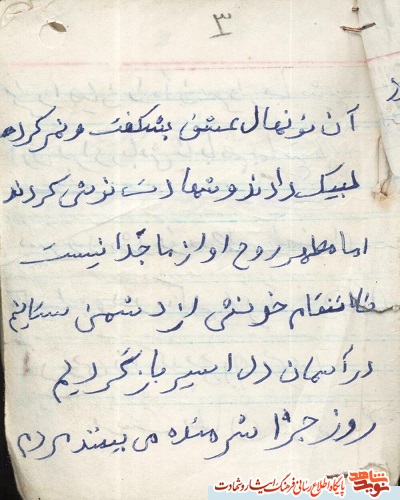 ۳
آن نونهال عشق بشکفت و ثمر کرده
لبیک دادند و شهادت نوشی کردند
اما مطهر روح او از ما جدا نیست
تا انتقام خونش از دشمن ستانیم
در آسمان دل اسیر باز گردیم
روز جزا شرمنده می بیند مردم
نوید شاهد
پایگاه اطلاع رسانی فرهنگ ایثار و شهادت